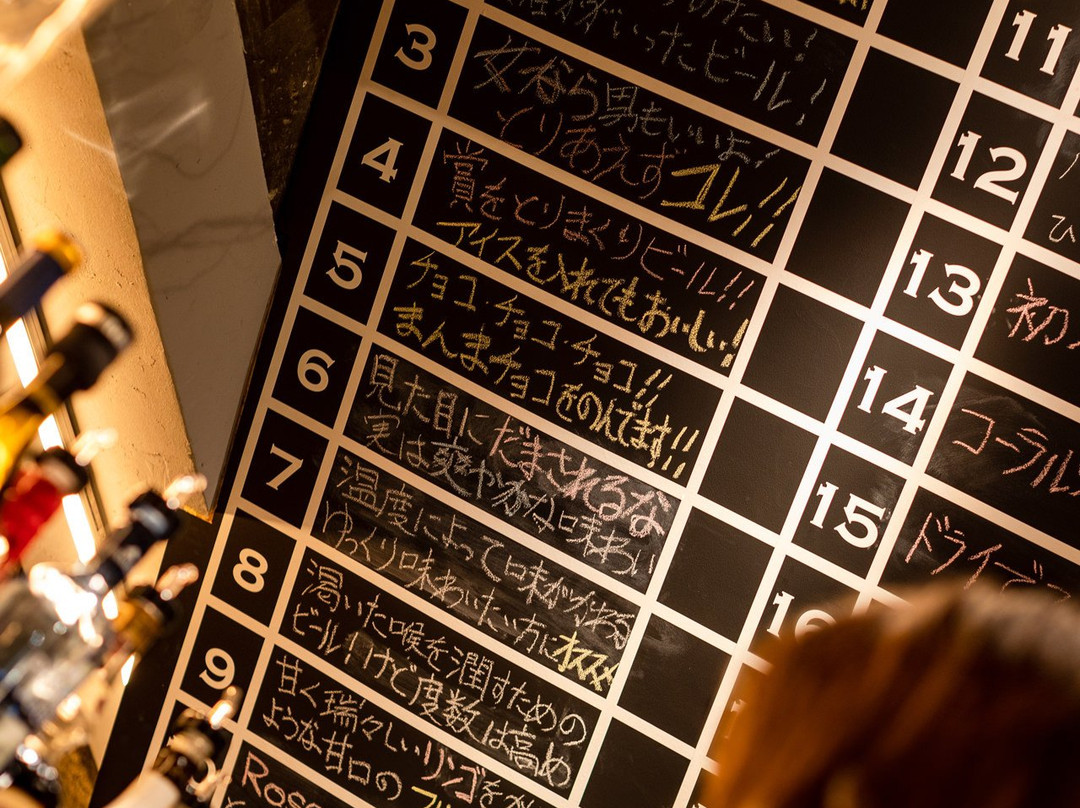 3
ビール!
女なら男もいいよ!
とりあえずコレ!!
4
賞をとりまくりビール!!
アイスを入れてもおいしい!
5
チョコ・チョコ・チョコ!!
まんまチョコをのんでます!!
6
見た目にだまされるな
実は爽やかな味わい
7
温度によって味がかわる
ゆっくり味わいたい方にオススメ
8
渇いた喉を潤すための
ビール!けど度数は高め
9
甘く瑞々しいリンゴを
ような甘口の
Rose
11
12
ひ
13
初
14
コーラル
15
ドライで
16